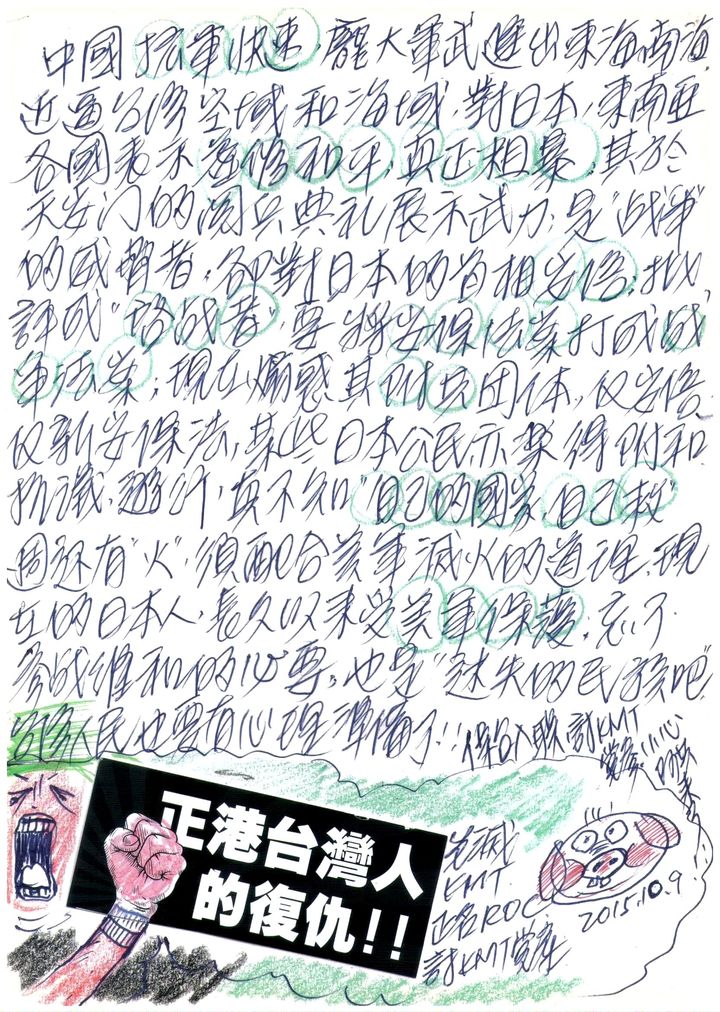 中國擴軍快速,龐大軍武進出東海、南海,
近逼台灣空域和海域,對日本,東南亞
各國表示要修和平,真正粗暴,其於
天安门的閱兵典礼展示武力,是"战争"
的威脅者,卻對日本的首相安倍,批
評成"好战者",要將安保法案打成战
争法案;現在煽惑其附共团体,反安倍
反新安保法,某些日本公民亦樂得附和
抗議、遊行,真不知"自己的國家自己救"
周边有"火",須配合美軍滅火的道理,現
在的日本人,長久以來受美軍保護,忘了
参战維和的必要,也是"迷失的民族吧"
台灣人民也要有心理準備了!!保台入聯討KMT
黨產,小心
正港台灣人
的復仇!!
先滅
KMT
正名ROC
討KMT黨產
2015.10.9.